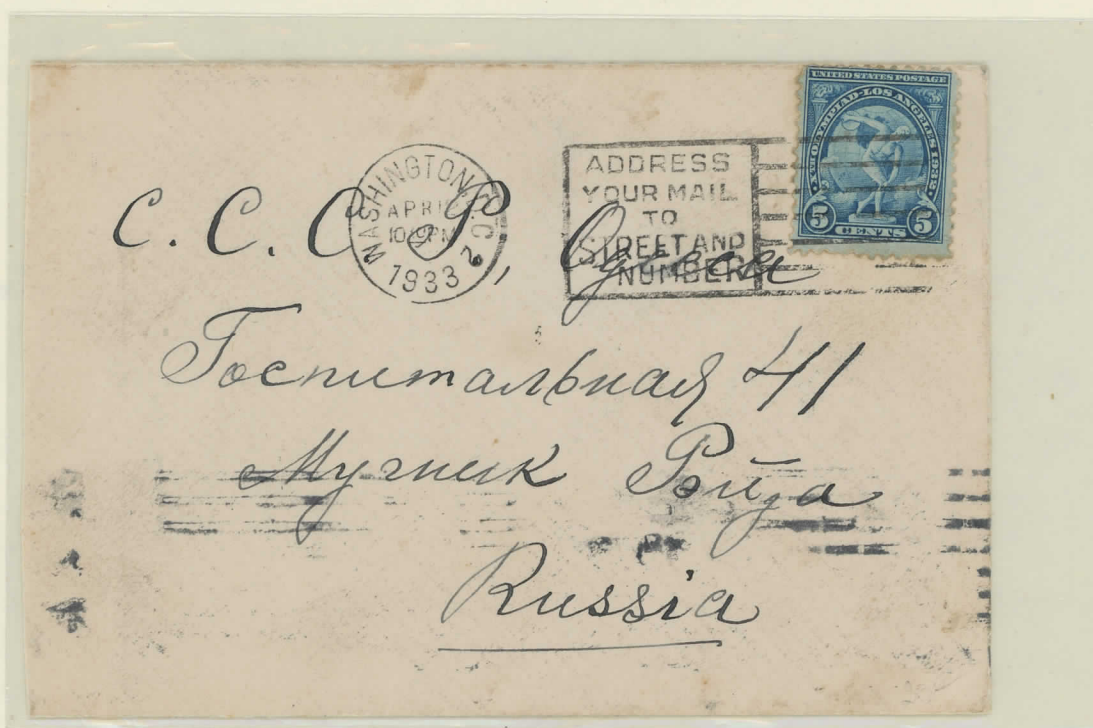 UNITED STATES POSTAGE
XTH OLYMPIAD-LOS ANGELES 1932
5 CENTS 5
WASHINGTON, D.C. 2
APR
PM
1933
ADDRESS
YOUR MAIL
TO
STREET AND
NUMBER
С. С. С. Р., Одесса
Госпитальная 41
Мучник
Russia